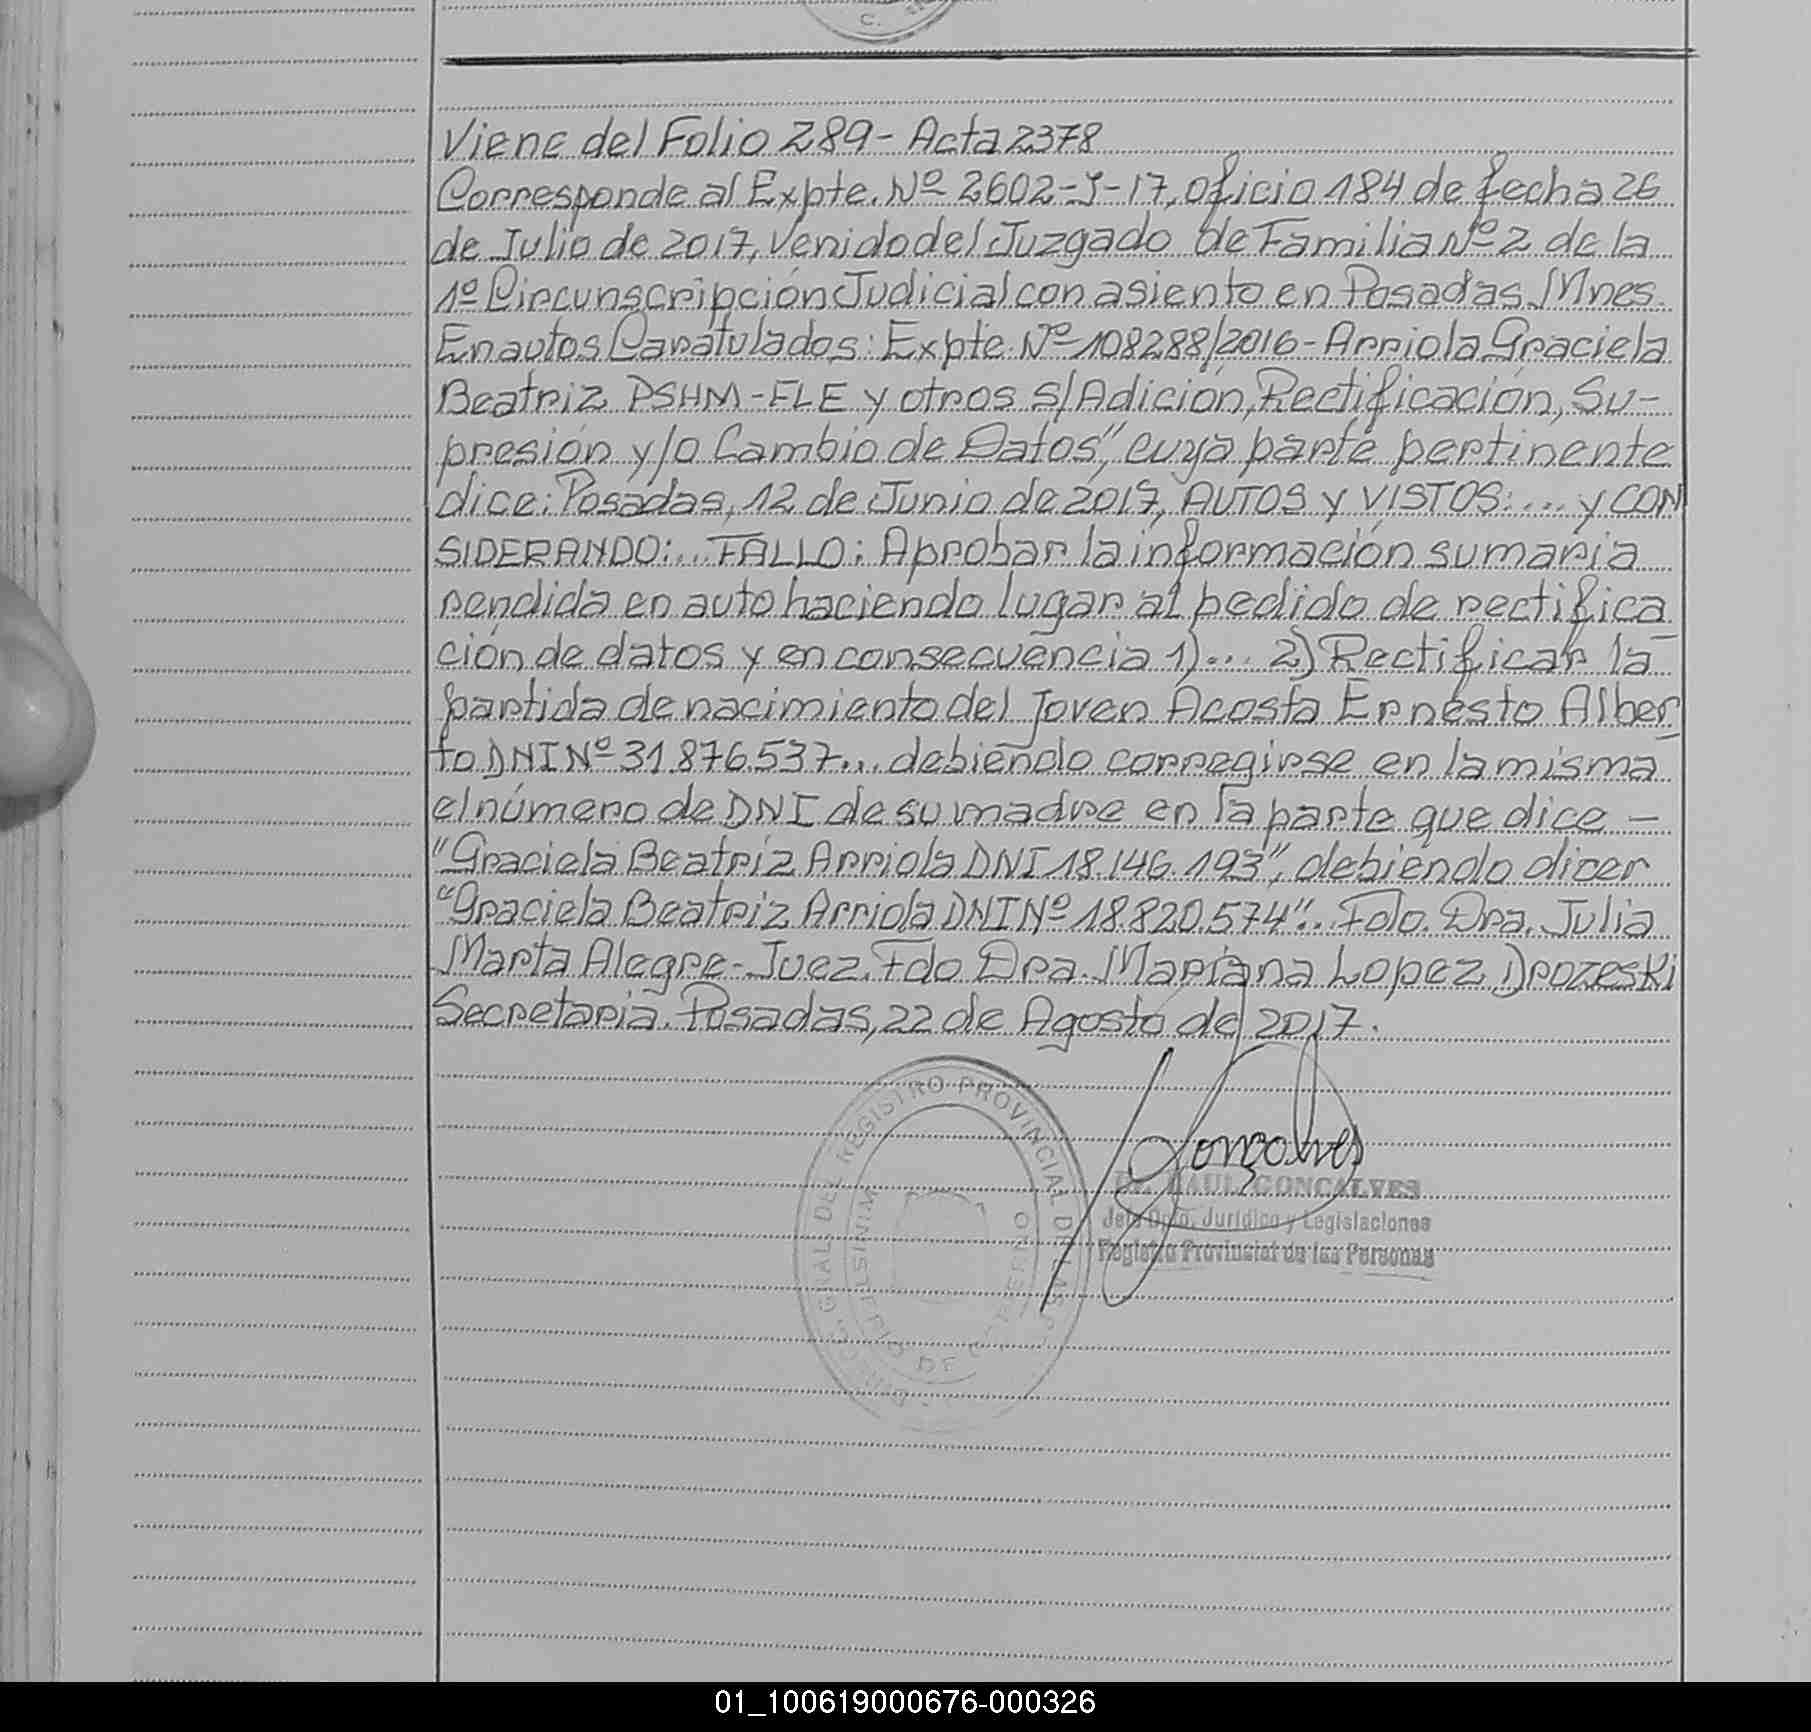 C.
Viene del Folio 289 - Acta 2378
Corresponde al Expte. Nº 2602-J-17, oficio 184 de fecha 26
de Julio de 2017, venido del Juzgado de Familia Nº 2 de la
1º Circunscripción Judicial con asiento en Posadas, Mnes.
En autos Caratulados: Expte. Nº 108288/2016 - Arriola Graciela
Beatriz PSHM-FLE y otros s/Adición, Rectificación, Su-
presión y/o Cambio de Datos", cuya parte pertinente
dice: Posadas, 12 de Junio de 2017, AUTOS y VISTOS:.... y CON
SIDERANDO:... FALLO: Aprobar la información sumaria
rendida en auto haciendo lugar al pedido de rectifica
ción de datos y en consecuencia 1)... 2) Rectificar la
partida de nacimiento del Joven Acosta Ernesto Alber
to DNI Nº 31.876.537... debiendo corregirse en la misma
el número de DNI de su madre en la parte que dice -
"Graciela Beatriz Arriola DNI 18.146.193", debiendo dicer
"Graciela Beatriz Arriola DNI Nº 18.820.574"... Fdo. Dra. Julia
Marta Alegre - Juez. Fdo Dra. Mariana Lopez Drozeski
Secretaria. Posadas, 22 de Agosto de 2017.
DIREC. GRAL. DEL REGISTRO PROVINCIAL DE LAS
MINISTERIO DE GOBIERNO
Gonçalves
Dr. RAUL GONCALVES
Jefe Dpto. Jurídico y Legislaciones
Registro Provincial de las Personas
01_100619000676-000326